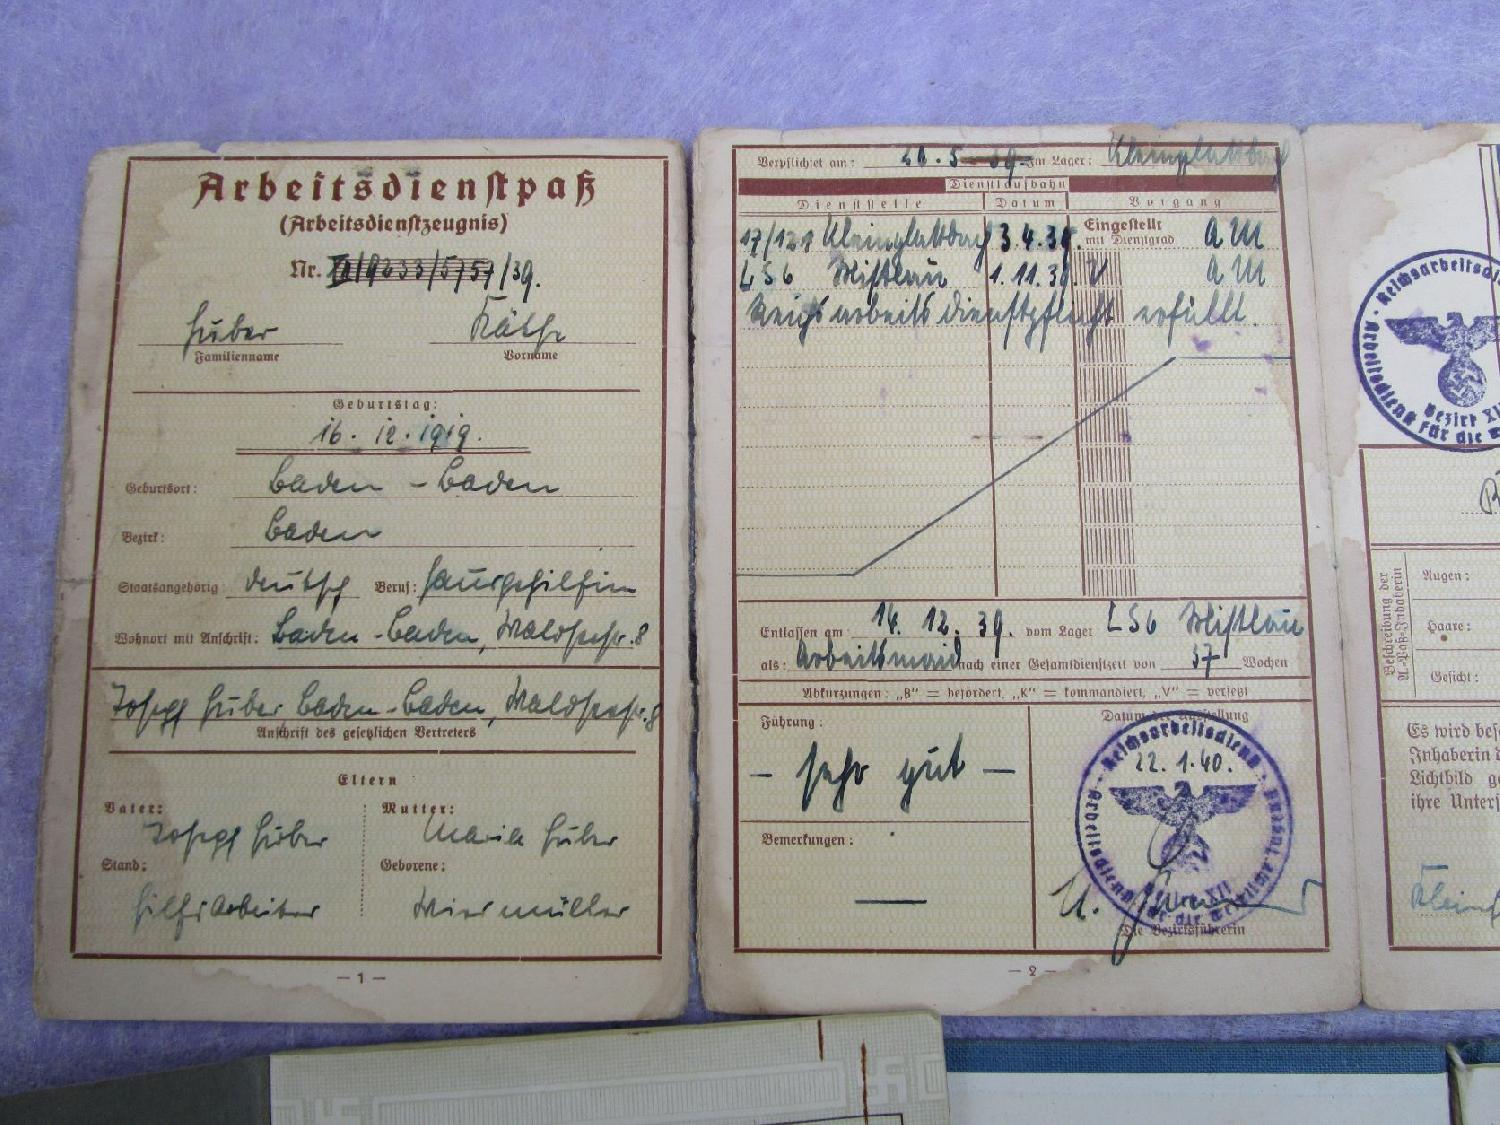 Arbeitsdienstpaß
(Arbeitsdienstzeugnis)
Nr. /39.
Huber Käthe
Familienname Vorname
Geburtstag:
16. 12. 1919.
Geburtsort: Baden-Baden
Bezirk: Baden
Staatsangehörig: deutsch Beruf: Hausgehilfin
Wohnort mit Anschrift: Baden-Baden, 8
Josef Huber Baden-Baden, 8
Anschrift des gesetzlichen Vertreters
Eltern
Vater: Mutter:
Josef Huber Maria Huber
Stand: Geborene:
Hilfsarbeiter
— 1 —
Verpflichtet am: 5 39 Im Lager: Kleinglattbach
Dienstlaufbahn
Dienststelle Datum Vorgang
17/121 Kleinglattbach 3.4.39. Eingestellt mit Dienstgrad AM
LS6 Mistlau 1.11.39. V AM
Reichsarbeitsdienstpflicht erfüllt.
Entlassen am: 14. 12. 39. vom Lager LS6 Mistlau
als: Arbeitsmaid nach einer Gesamtdienstzeit von 37 Wochen
Abkürzungen: „B" = befördert, „K" = kommandiert, „V" = versetzt
Führung:
— sehr gut —
Bemerkungen:
Datum der Ausstellung
22. 1. 40.
Reichsarbeitsdienst
Arbeitsdienst für die
Bezirk XII
Die Bezirksführerin
— 2 —
Reichsarbeitsdi
Arbeitsdienst für die
Bezirk XI
Beschreibung der
A.-Paß-Inhaberin
Augen:
Haare:
Gesicht:
Es wird bes
Inhaberin d
Lichtbild g
ihre Unters